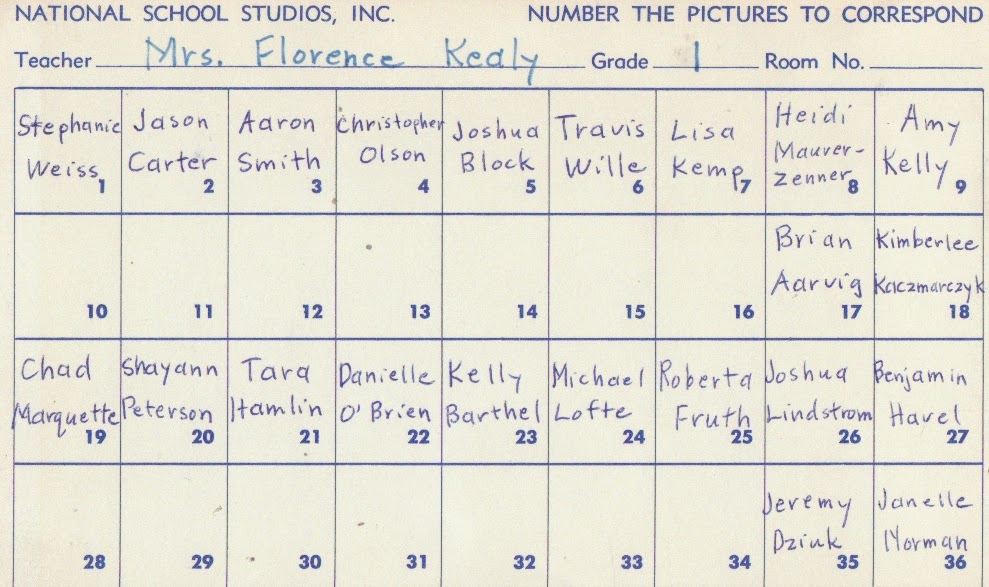 NATIONAL SCHOOL STUDIOS, INC. NUMBER THE PICTURES TO CORRESPOND
Teacher Mrs. Florence Kealy Grade 1 Room No.
Stephanie Weiss 1
Jason Carter 2
Aaron Smith 3
Christopher Olson 4
Joshua Block 5
Travis Wille 6
Lisa Kemp 7
Heidi Maurer-zenner 8
Amy Kelly 9
10
11
12
13
14
15
16
Brian Aarvig 17
Kimberlee Kaczmarczyk 18
Chad Marquette 19
Shayann Peterson 20
Tara Hamlin 21
Danielle O'Brien 22
Kelly Barthel 23
Michael Lofte 24
Roberta Fruth 25
Joshua Lindstrom 26
Benjamin Havel 27
28
29
30
31
32
33
34
Jeremy Dziuk 35
Janelle Norman 36